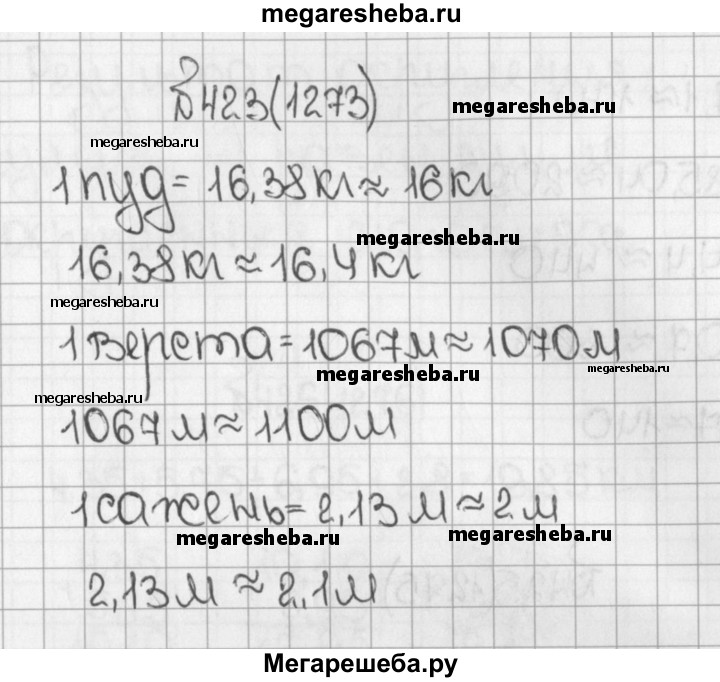 megaresheba.ru
№423(1273)
megaresheba.ru
megaresheba.ru
1 пуд = 16,38 кг ≈ 16 кг
megaresheba.ru
16,38 кг ≈ 16,4 кг
megaresheba.ru
1 верста = 1067 м ≈ 1070 м
megaresheba.ru
megaresheba.ru
megaresheba.ru
1067 м ≈ 1100 м
1 сажень = 2,13 м ≈ 2 м
megaresheba.ru
megaresheba.ru
2,13 м ≈ 2,1 м
Мегарешеба.ру